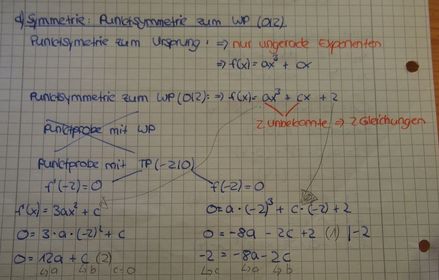 d) Symmetrie: Punktsymmetrie zum WP (0|2).
Punktsymmetrie zum Ursprung: ⇒ nur ungerade Exponenten
⇒ f(x) = ax³ + cx
Punktsymmetrie zum WP(0|2): ⇒ f(x) = ax³ + cx + 2
2 Unbekannte ⇒ 2 Gleichungen
Punktprobe mit WP
Punktprobe mit TP (-2|0)
f'(-2)=0 f(-2)=0
f'(x) = 3ax² + c 0 = a·(-2)³ + c·(-2) + 2
0 = 3·a·(-2)² + c 0 = -8a - 2c + 2 (1) |-2
0 = 12a + c (2) -2 = -8a - 2c
↳a ↳b c=0 ↳c ↳a ↳b